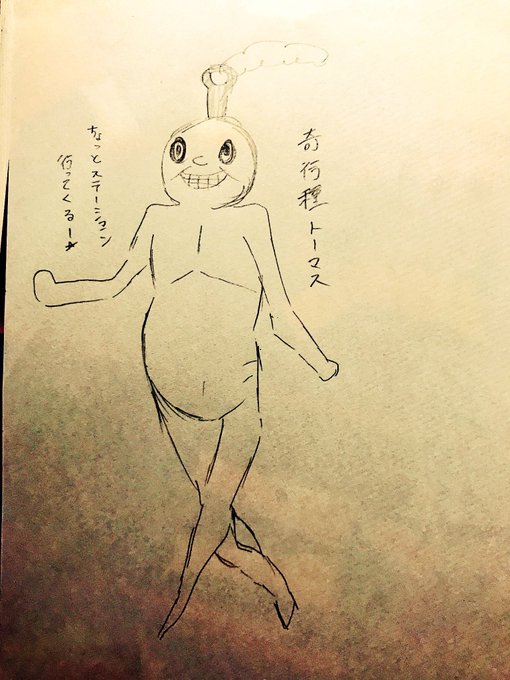 奇行種トーマス
ちょっとステーション
行ってくるー♪